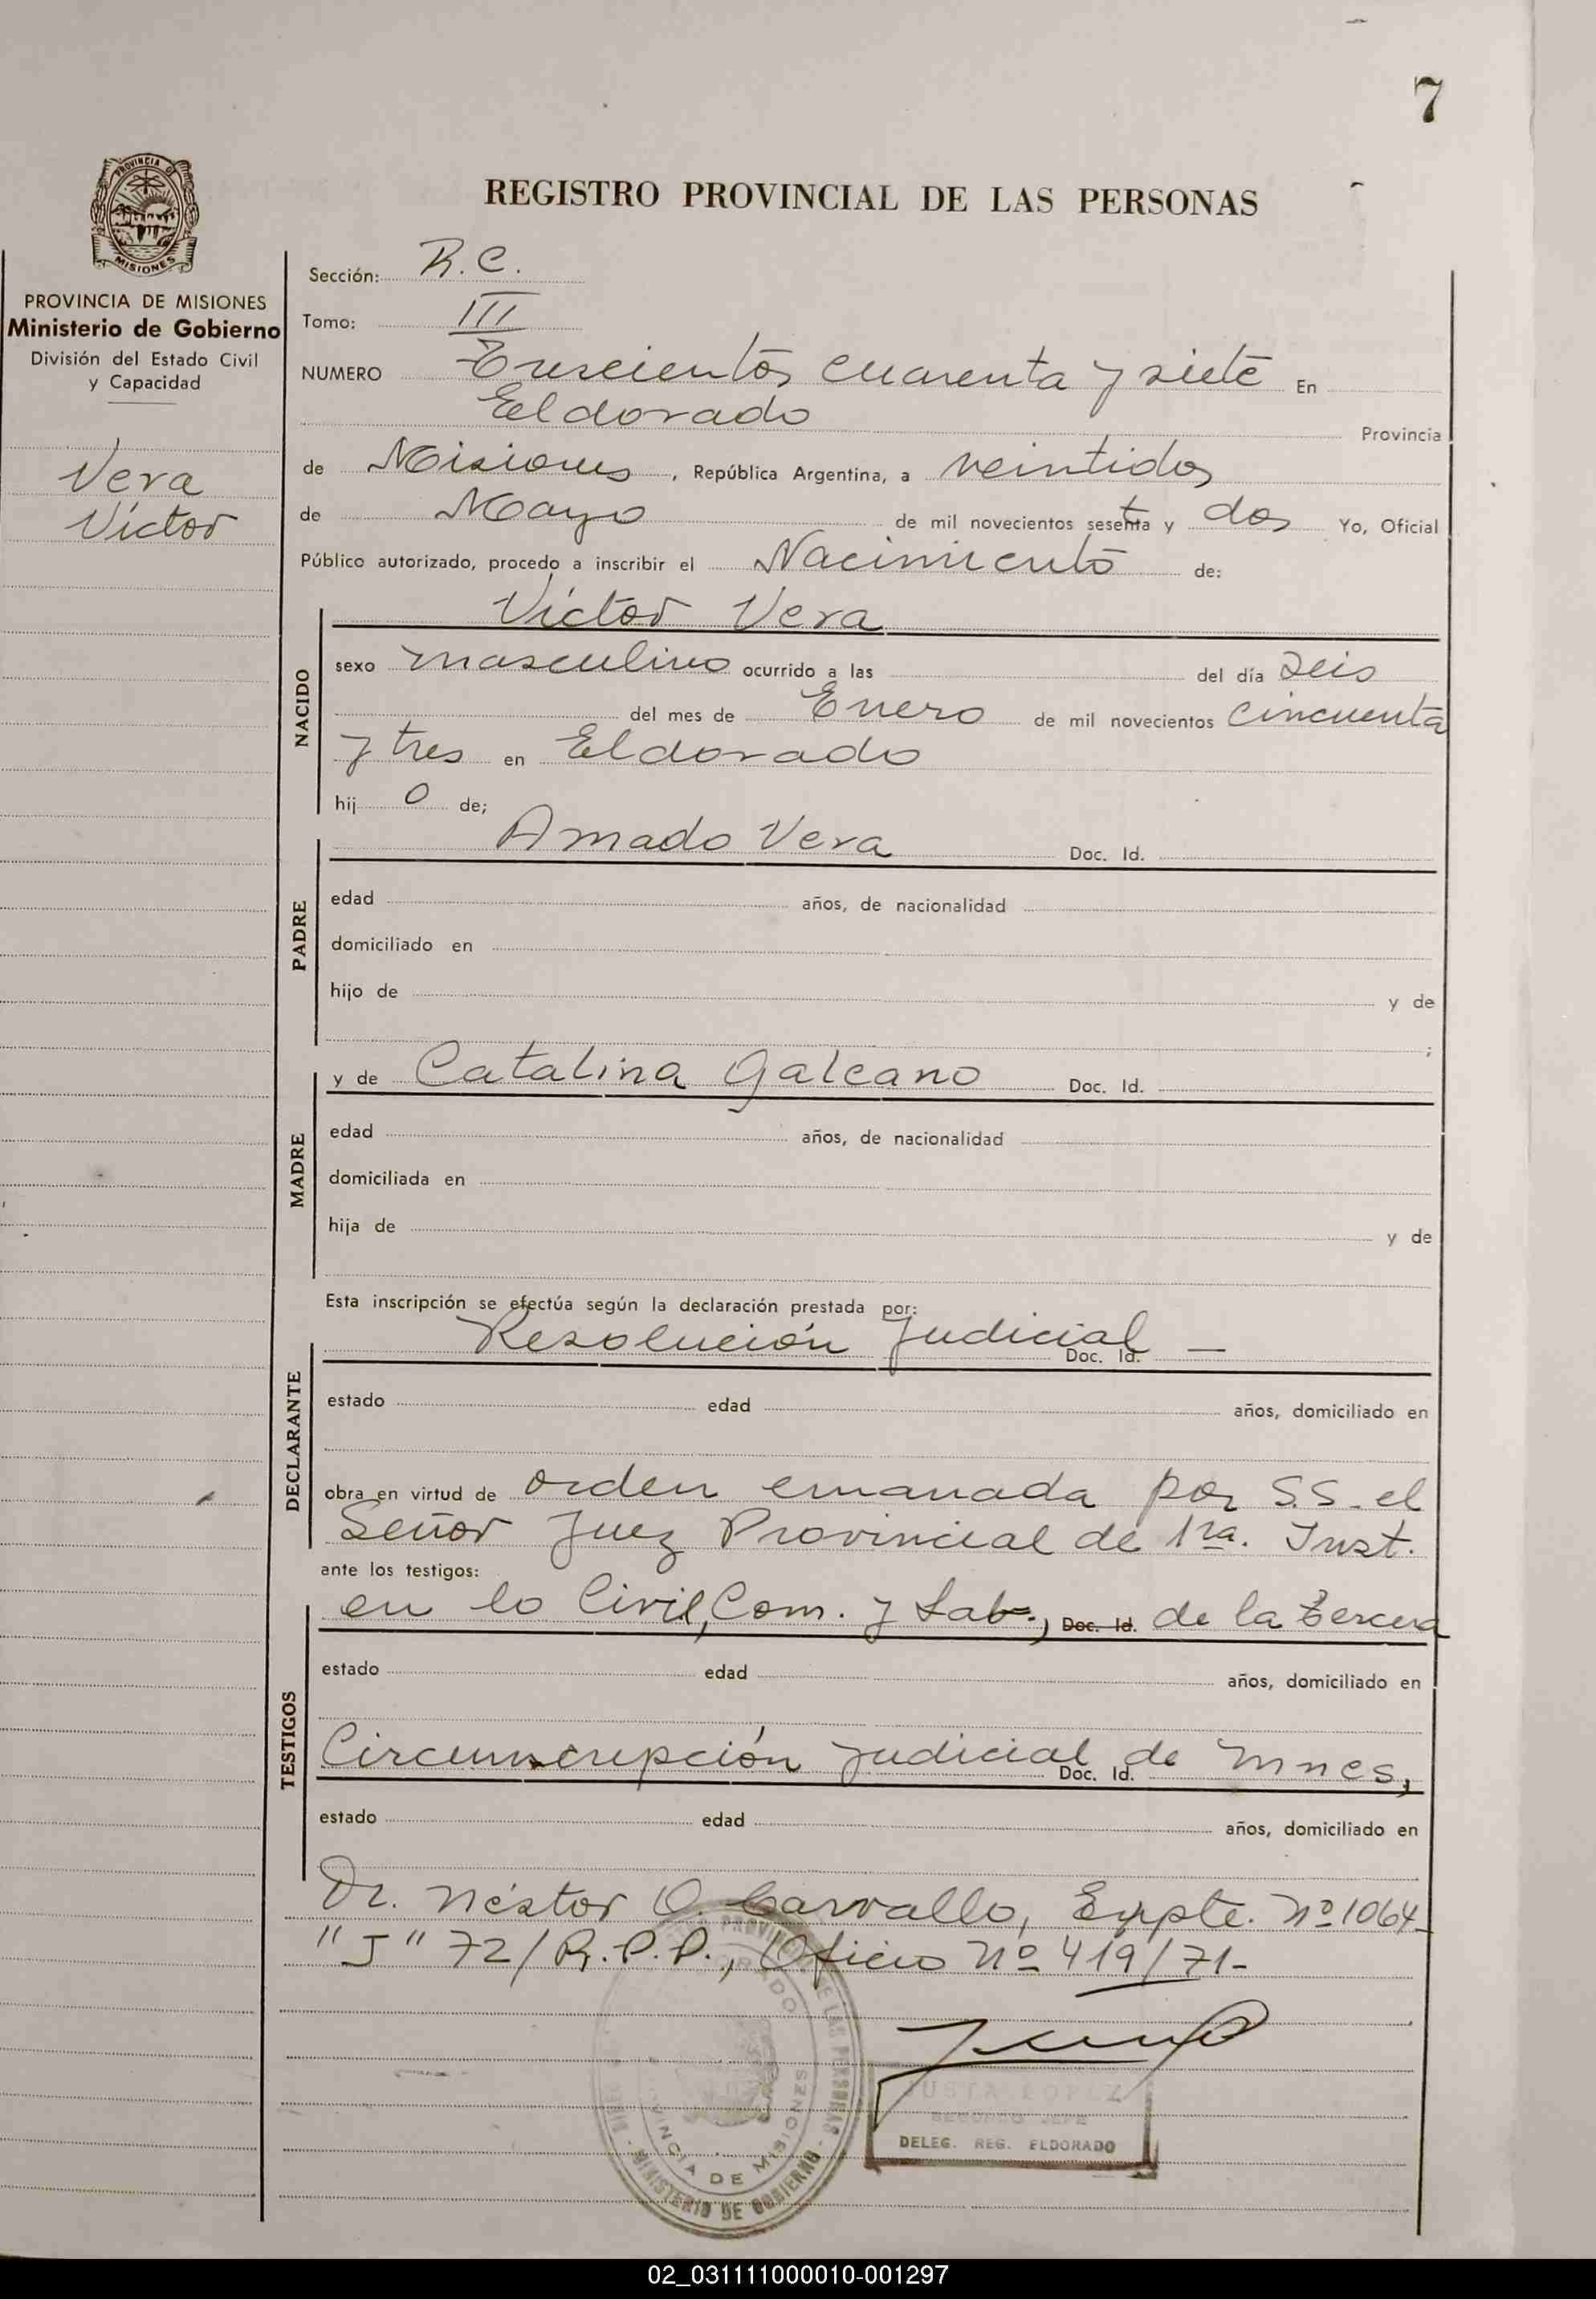 7
PROVINCIA DE
MISIONES
REGISTRO PROVINCIAL DE LAS PERSONAS
PROVINCIA DE MISIONES
Ministerio de Gobierno
División del Estado Civil
y Capacidad
Vera
Víctor
Sección: R.C.
Tomo: III
NUMERO Trescientos cuarenta y siete En
Eldorado Provincia
de Misiones, República Argentina, a veintidos
de Mayo de mil novecientos sesenta y dos Yo, Oficial
Público autorizado, procedo a inscribir el Nacimiento de:
Víctor Vera
NACIDO
sexo masculino ocurrido a las del día seis
del mes de Enero de mil novecientos cincuenta
y tres en Eldorado
hij o de;
PADRE
Amado Vera Doc. Id.
edad años, de nacionalidad
domiciliado en
hijo de y de
;
MADRE
y de Catalina Galeano Doc. Id.
edad años, de nacionalidad
domiciliada en
hija de y de
Esta inscripción se efectúa según la declaración prestada por:
DECLARANTE
Resolución Judicial Doc. Id. —
estado edad años, domiciliado en
obra en virtud de orden emanada por S.S. el
Señor Juez Provincial de 1ra. Inst.
ante los testigos:
TESTIGOS
en lo Civil, Com. y Lab., Doc. Id. de la tercera
estado edad años, domiciliado en
Circunscripción Judicial de Mnes,
Doc. Id.
estado edad años, domiciliado en
Dr. Néstor O. Carvallo, Expte. Nº 1064-
"J" 72/R.P.P., Oficio Nº 419/71-
PROVINCIA DE MISIONES
MINISTERIO DE GOBIERNO
JUSTA LOPEZ
SEGUNDO JEFE
DELEG. REG. ELDORADO
02_031111000010-001297